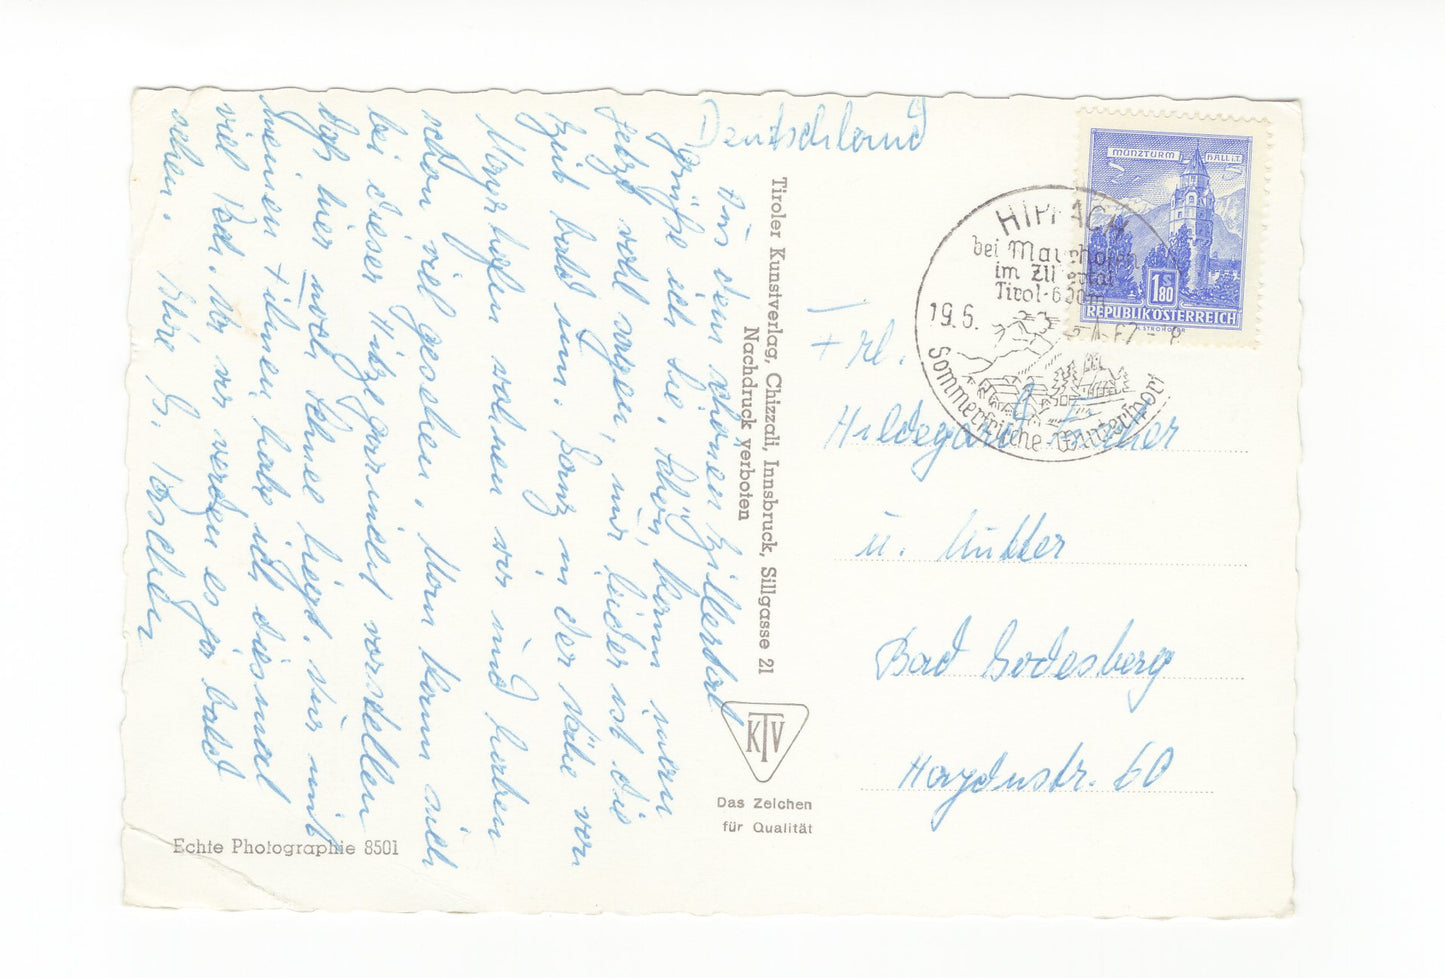 Aus dem schönen Zillertal
grüße ich Sie. Schön, kann man
jetzt wohl sagen, nur leider ist die
Zeit bald um. Ganz in der Nähe von
Mayrhofen wohnen wir und haben
schon viel gesehen. Man kann sich
bei dieser Hitze garnicht vorstellen
daß hier noch Schnee liegt. Wir mit
meinen Filmen habe ich diesmal
viel Wir werden es ja bald
sehen. Ihre G.
Echte Photographie 8501
Tiroler Kunstverlag, Chizzali, Innsbruck, Sillgasse 21
Nachdruck verboten
KTV
Das Zeichen
für Qualität
Deutschland
MÜNZTURM HALL i.T.
S 1.80
REPUBLIK ÖSTERREICH
HIPPACH
bei Mayrhofen
im Zillertal
Tirol-600m
19.6.
Sommerfrische-Wintersport
Frl.
Hildegard
u. Mutter
Bad Godesberg
Haydnstr. 60